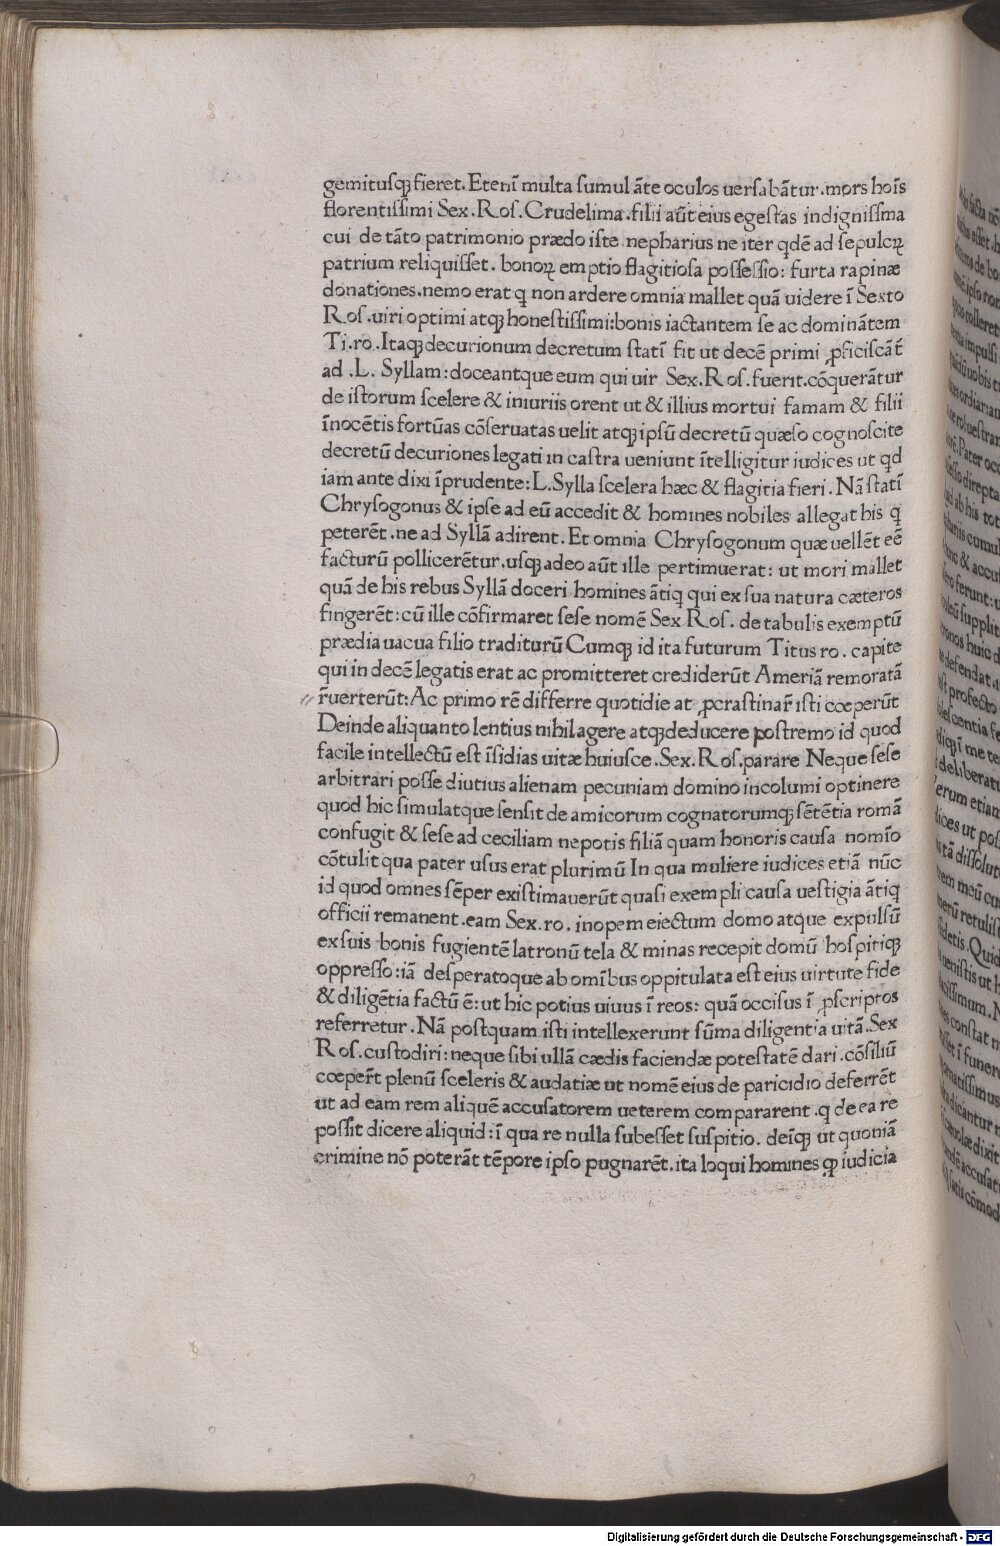 gemituſqꝫ fieret. Etenī multa ſumul āte oculos uerſabātur. mors hoīs
florentiſſimi Sex. Roſ. Crudelima. filii aūt eius egeſtas indigniſſma
cui de tāto patrimonio prædo iſte nepharius ne iter qdē ad ſepulcꝝ
patrium reliquiſſet. bonoꝝ emptio flagitioſa poſſeſſio: furta rapinæ
donationes. nemo erat q non ardere omnia mallet quā uidere ī Sexto
Roſ. uiri optimi atqꝫ honeſtiſſimi: bonis iactantem ſe ac dominātem
Ti. ro. Itaqꝫ decurionum decretum ſtatī fit ut decē primi ꝓficiſcāt̄
ad .L. Syllam: doceantque eum qui uir Sex. Roſ. fuerit. cōquerātur
de iſtorum ſcelere & iniuriis orent ut & illius mortui famam & filii
īnocētis fortūas cōſeruatas uelit atqꝫ ipſū decretū quæſo cognoſcite
decretū decuriones legati in caſtra ueniunt ītelligitur iudices ut qd
iam ante dixi īprudente: L. Sylla ſcelera hæc & flagitia fieri. Nā ſtatī
Chryſogonus & ipſe ad eū accedit & homines nobiles allegat his q
peterēt. ne ad Syllā adirent. Et omnia Chryſogonum quæ uellēt eē
facturū pollicerētur. uſqꝫ adeo aūt ille pertimuerat: ut mori mallet
quā de his rebus Syllā doceri homines ātiq qui ex ſua natura cæteros
fingerēt: cū ille cōfirmaret ſeſe nomē Sex. Roſ. de tabulis exemptū
prædia uacua filio traditurū Cumqꝫ id ita futurum Titus ro. capite
qui in decē legatis erat ac promitteret crediderūt Ameriā remoratā
r̄uerterūt: Ac primo rē differre quotidie at ꝓcraſtinar̄ iſti cœperūt
Deinde aliquanto lentius nihil agere atqꝫ deducere poſtremo id quod
facile intellectū eſt īſidias uitæ huiuſce. Sex. Roſ. parare Neque ſeſe
arbitrari poſſe diutius alienam pecuniam domino incolumi optinere
quod hic ſimulatque ſenſit de amicorum cognatorumqꝫ ſētētia romā
confugit & ſeſe ad ceciliam nepotis filiā quam honoris cauſa nomīo
cōtulit qua pater uſus erat plurimū In qua muliere iudices etiā nūc
id quod omnes ſēper exiſtimauerūt quaſi exempli cauſa ueſtigia ātiq
officii remanent. eam Sex. ro. inopem eiectum domo atque expulſū
ex ſuis bonis fugientē latronū tela & minas recepit domū hoſpitiqꝫ
oppreſſo: iā deſperatoque ab omībus oppitulata eſt eius uirtute fide
& diligētia factū ē: ut hic potius uiuus ī reos: quā occiſus ī ꝓſcriptos
referretur. Nā poſtquam iſti intellexerunt ſūma diligentia uitā. Sex
Roſ. cuſtodiri: neque ſibi ullā cædis faciendæ poteſtatē dari. cōſiliū
cœper̄t plenū ſceleris & audatiæ ut nomē eius de paricidio deferrēt
ut ad eam rem aliquē accuſatorem ueterem compararent. q de ea re
poſſit dicere aliquid: ī qua re nulla ſubeſſet ſuſpitio. deīqꝫ ut quoniā
crimine nō poterāt tēpore ipſo pugnarēt. ita loqui homines ꝙ iudicia
Digitalisierung gefördert durch die Deutsche Forschungsgemeinschaft - DFG